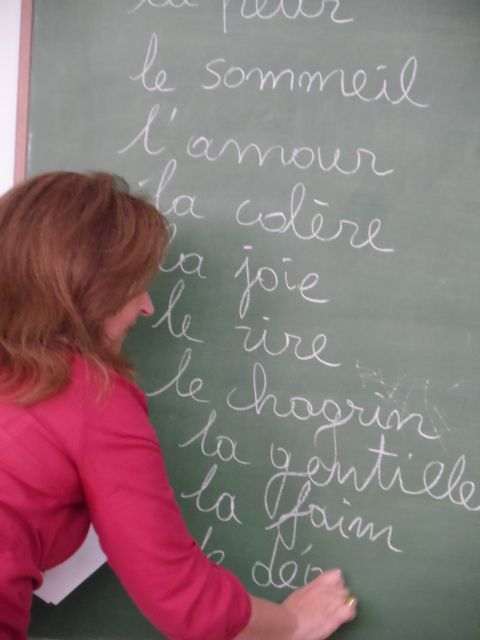 la peur
le sommeil
l'amour
la colère
la joie
le rire
le chagrin
la gentille
la faim
le dé